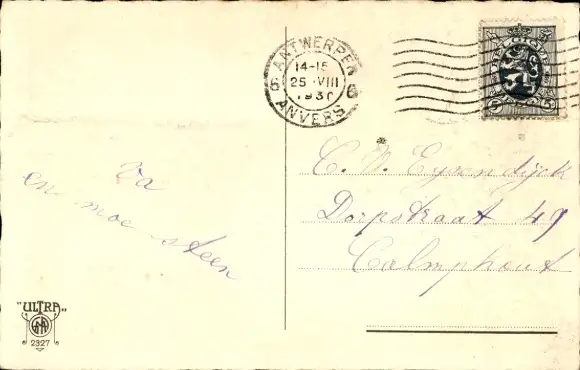 ANTWERPEN
14-15
6 25 VIII 6
1930
ANVERS
BELGIQUE
5 5
C. N. Eysendijck
Dorpstraat 49
Calmphout
Va
en moe steen
"ULTRA"
2327